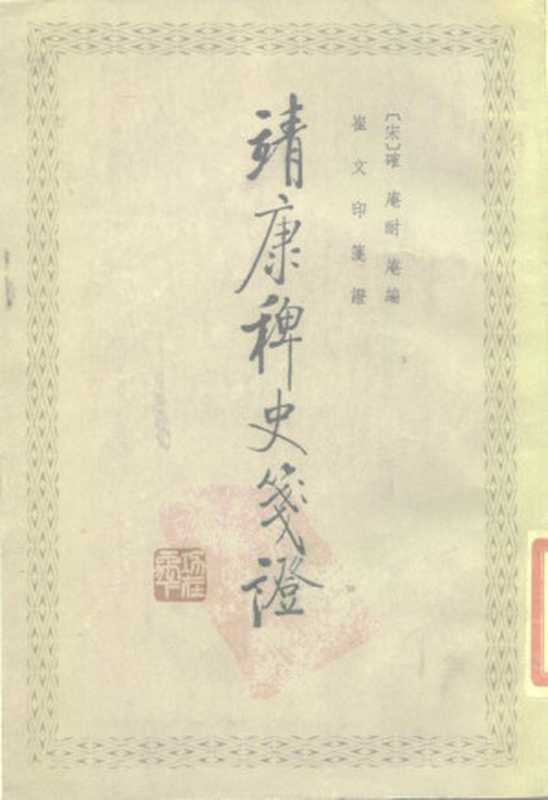 〔宋〕確庵耐庵編
崔文印箋證
靖康稗史箋證